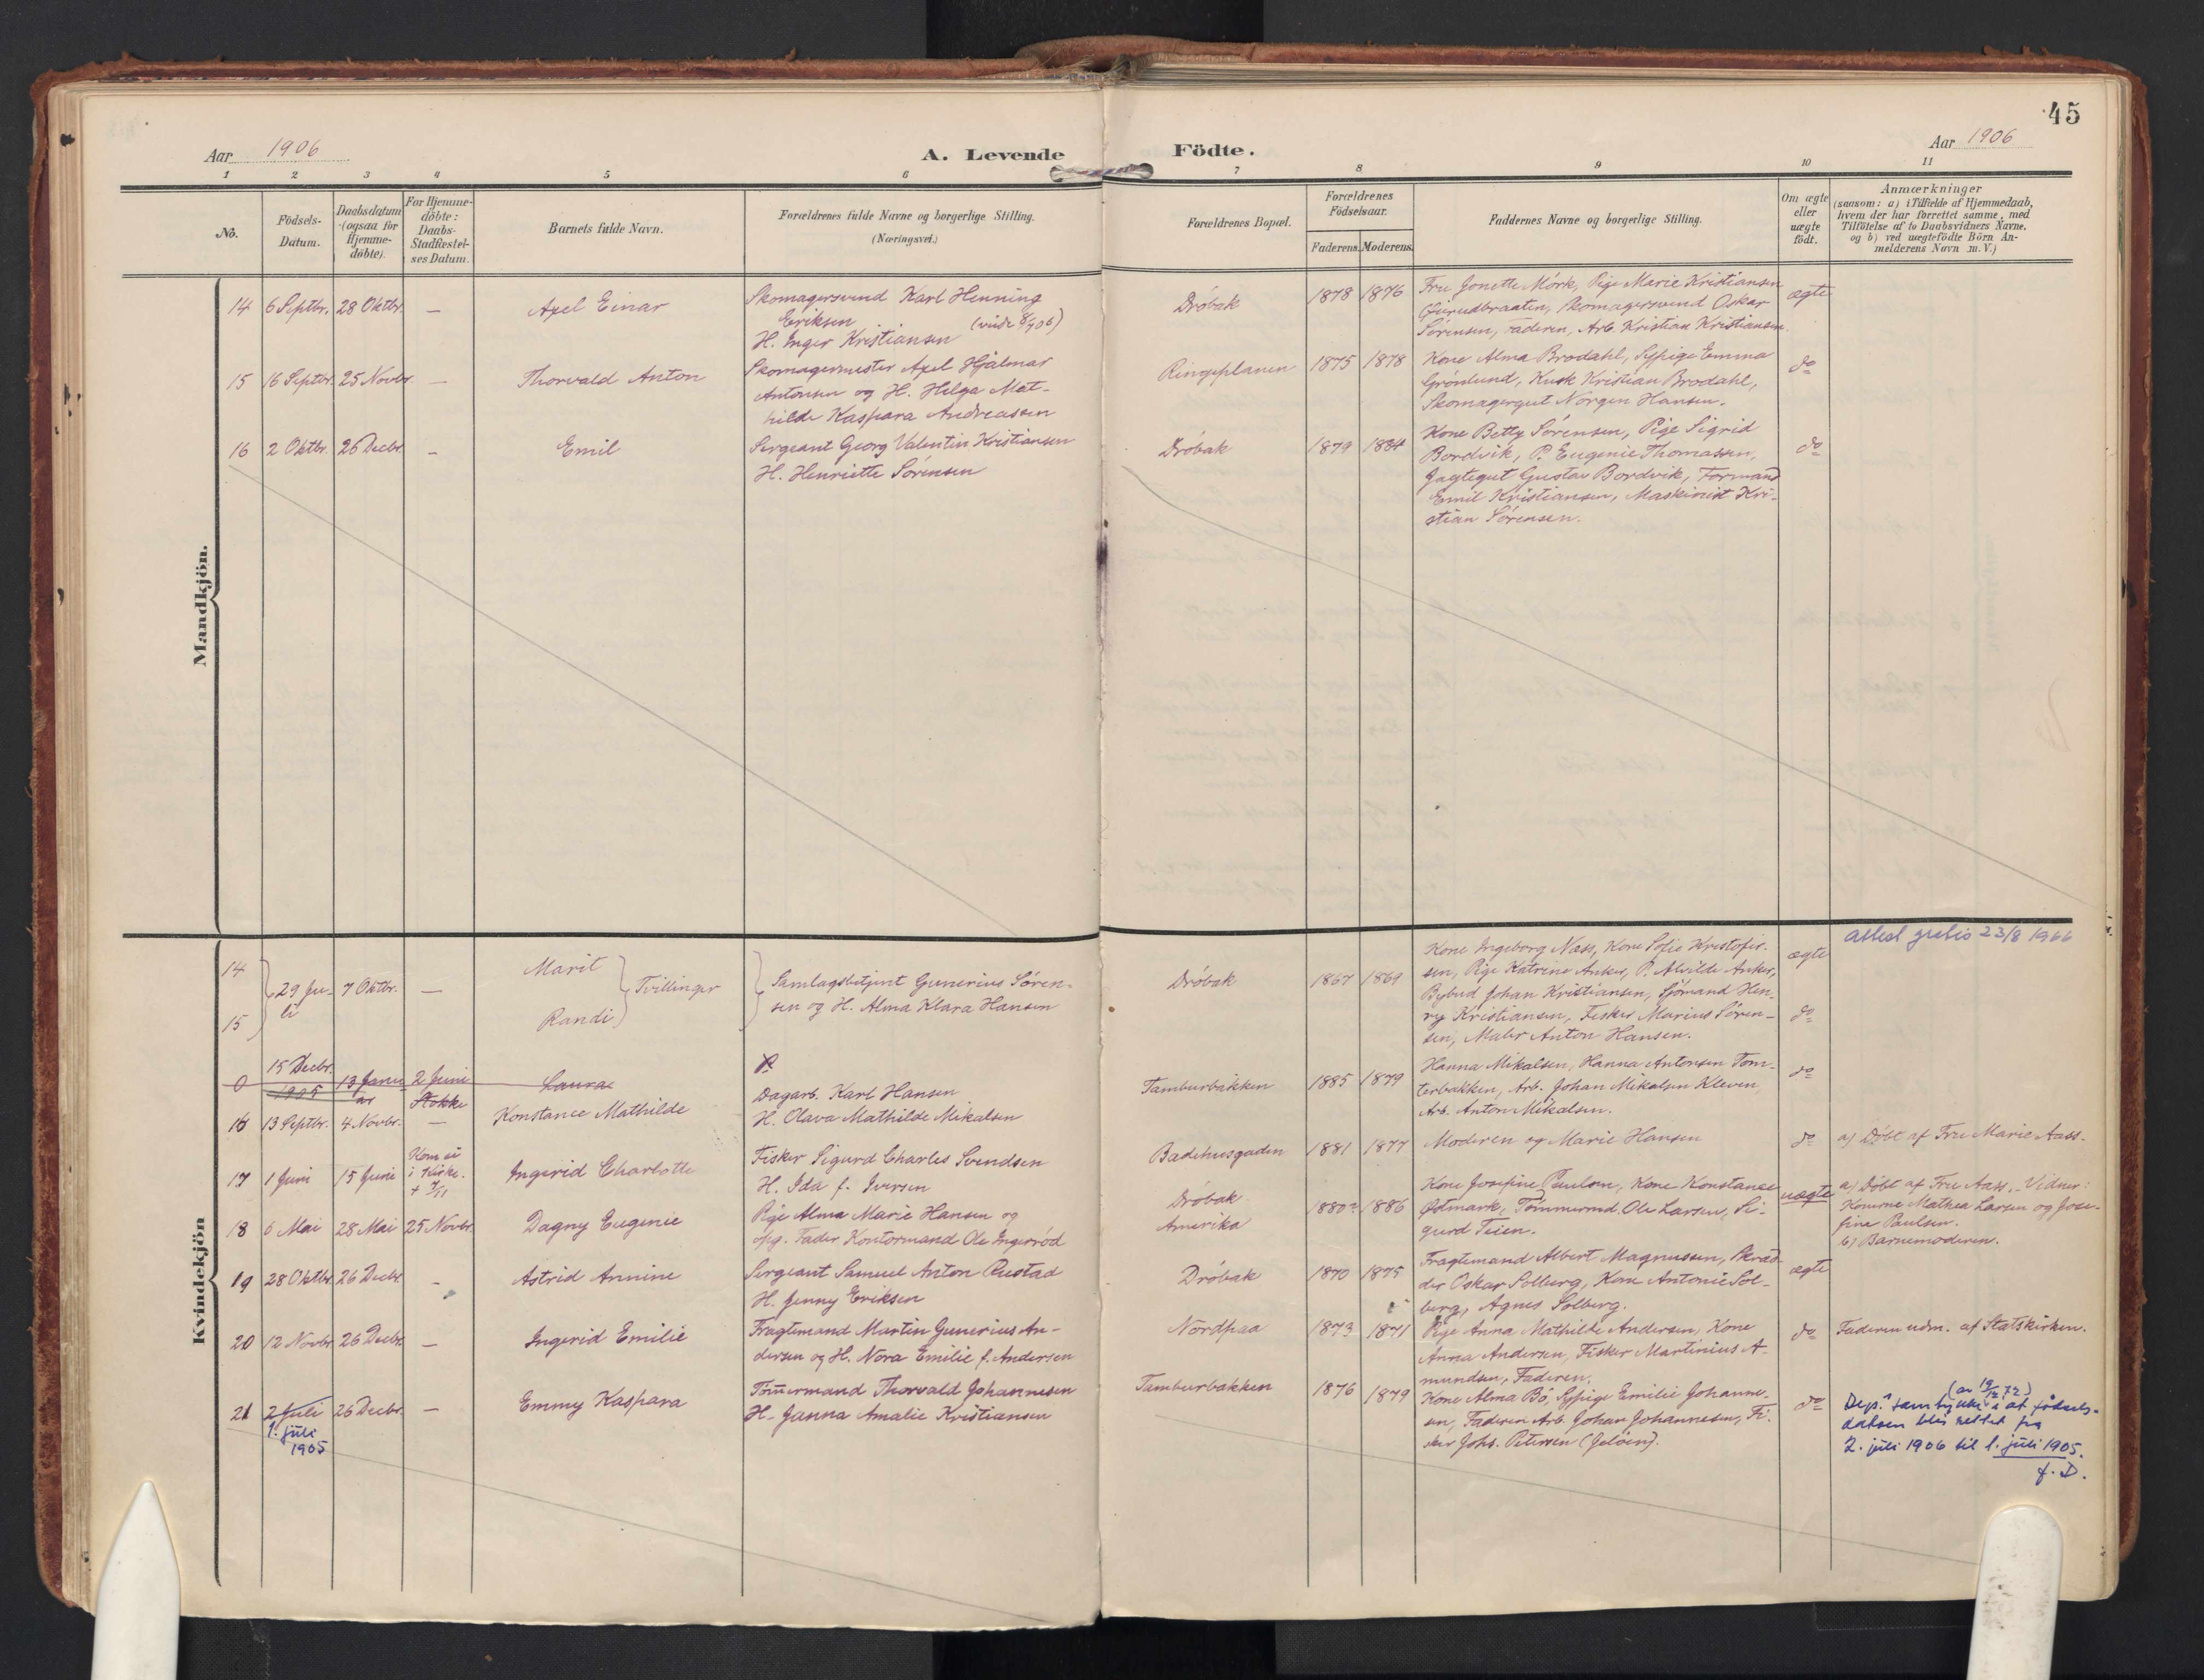 45
Aar 1906
A. Levende
Födte.
Aar 1906
1 2 3 4 5 6 7 8 9 10 11
No.
Födsels-
Datum.
Daabsdatum
(ogsaa for
Hjemme-
döbte).
For Hjemme-
döbte:
Daabs-
Stadfæstel-
ses Datum.
Barnets fulde Navn.
Forældrenes fulde Navne og borgerlige Stilling.
(Næringsvei.)
Forældrenes Bopæl.
Forældrenes
Födselsaar.
Faderens. Moderens.
Faddernes Navne og borgerlige Stilling.
Om ægte
eller
uægte
födt.
Anmærkninger
(saasom: a) i Tilfælde af Hjemmedaab,
hvem der har forrettet samme, med
Tilföielse af to Daabsvidners Navne.
og b) ved uægtefödte Börn An-
melderens Navn m. V.)
Mandkjön.
14 6 Septbr. 28 Oktbr. — Axel Einar
Skomagersvend Karl Henning
Eriksen (viede 8/9 06)
H. Inger Kristiansen
Dröbak 1878 1876
Fru Jonette Mörk, Pige Marie Kristiansen
Skomagersvend Oskar
Sörensen, Faderen, Arb. Kristian Kristiansen.
ægte
15 16 Septbr. 25 Novbr. — Thorvald Anton
Skomagermester Axel Hjalmar
Antonsen og H. Helga Mat-
hilde Kaspara Andreassen
Ringeplanen 1875 1878
Kone Alma Brodahl, Sypige Emma
Grönlund, Kusk Kristian Brodahl,
Skomagergut Nörgen Hansen.
do
16 2 Oktbr. 26 Decbr. — Emil
Sergeant Georg Valentin Kristiansen
H. Henriette Sörensen
Dröbak 1879 1884
Kone Betty Sörensen, Pige Sigrid
Bordvik, P. Eugenie Thomassen,
Jagtegut Gustav Bordvik, Formand
Emil Kristiansen, Maskinist Kri-
stian Sörensen.
do
Kvindekjön
14
15
29 Ju-
li
7 Oktbr. —
Marit
Randi
Tvillinger
Samlagsbetjent Gunerius Sören-
sen og H. Alma Klara Hansen
Dröbak 1867 1869
Kone Ingeborg Næss, Kone Sofie Kristofer-
sen, Pige Katrine Anker, P. Alvilde Anker,
Bybud Johan Kristiansen, Sjömand Hen-
ry Kristiansen, Fisker Marius Sören-
sen, Maler Anton Hansen.
ægte
do
attest gratis 23/8 1966
0 15 Decbr.
1905
13 Janu-
ar
2 Juni
Stokke
Laura
P.
16 13 Septbr. 4 Novbr. — Konstance Mathilde
Dagarb. Karl Hansen
H. Olava Mathilde Mikalsen
Tamburbakken 1885 1879
Hanna Mikalsen, Hanna Antonsen Tom-
terbakken, Arb. Johan Mikalsen Kleven,
Arb. Anton Mikalsen.
do
17 1 Juni 15 Juni
Kom ei
i Kirke.
+ 7/11
Ingerid Charlotte
Fisker Sigurd Charles Svendsen
H. Ida f. Iversen
Badehusgaden 1881 1877
Moderen og Marie Hansen
do
a) Döbt af Fru Marie Aass.
18 6 Mai 28 Mai 25 Novbr. Dagny Eugenie
Pige Alma Marie Hansen og
opg. Fader Kontormand Ole Ingeröd
Dröbak
Amerika
1880? 1886
Kone Josefine Paulsen, Kone Konstance
Östmark, Tömmermd. Ole Larsen, Si-
gurd Teien.
uægte
a) Döbt af Fru Aass. - Vidner:
Konerne Mathea Larsen og Jose-
fine Paulsen.
b) Barnemoderen.
19 28 Oktbr. 26 Decbr. — Astrid Armine
Sergeant Samuel Anton Rustad
H. Jenny Eriksen
Dröbak 1870 1875
Fragtemand Albert Magnussen, Skræd-
der Oskar Solberg, Kone Antonie Sol-
berg, Agnes Solberg.
ægte
20 12 Novbr. 26 Decbr. — Ingerid Emilie
Fragtemand Martin Gunerius An-
dersen og H. Nora Emilie f. Andersen
Nordpaa 1873 1871
Pige Anna Mathilde Andersen, Kone
Anna Andersen, Fisker Martinius A-
mundsen, Faderen.
do
Faderen udm. af Statskirken.
21 2 Juli
1. juli
1905
26 Decbr. — Emmy Kaspara
Tömmermand Thorvald Johannesen
H. Janna Amalie Kristiansen
Tamburbakken 1876 1879
Kone Alma Bö, Sypige Emilie Johanne-
sen, Faderen Arb. Johan Johannesen, Fi-
sker Johs. Petersen (Jelöen).
do
(av 19/12 72)
Dep.s samtykke i at fødsels-
datoen blir rettet fra
2. juli 1906 til 1. juli 1905.
f. D.